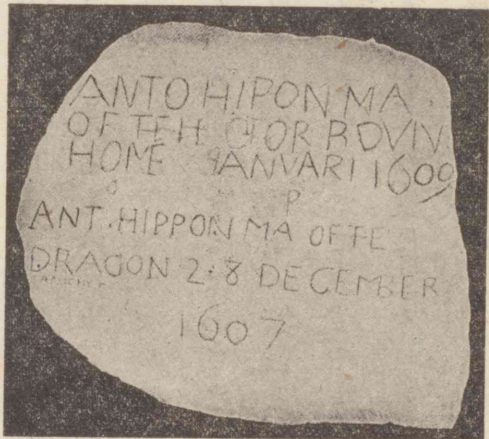 ANTO HIPON MA
OF TEH CTOR BDVVN
HOME IANVARI 1609
ANT. HIPPON MA OF TE
DRAGON 2.8 DECEMBER
1607